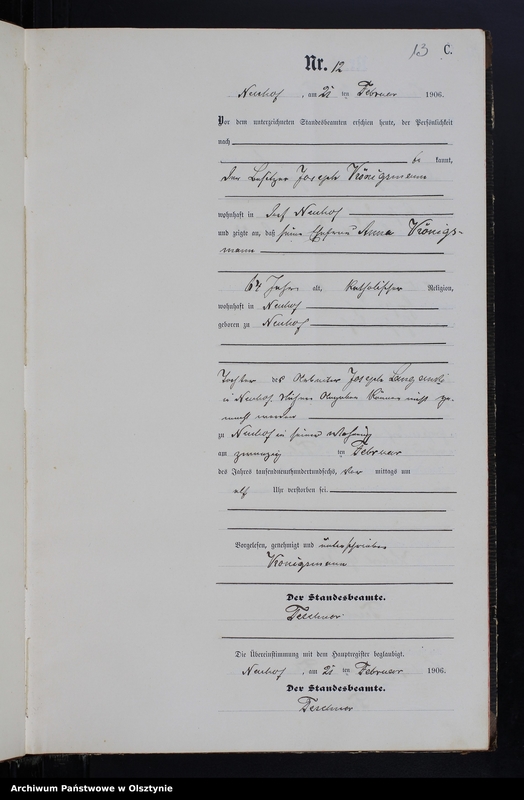 13 C.
Nr. 12
Neuhof, am 21 ten Februar 1906.
Vor dem unterzeichneten Standesbeamten erschien heute, der Persönlichkeit
nach
be kannt,
der Besitzer Joseph Königsmann
wohnhaft in Neuhof
und zeigte an, daß seine Ehefrau Anna Königs-
mann
Jahre alt, katholischer Religion,
wohnhaft in Neuhof
geboren zu Neuhof
Tochter des Arbeiter Joseph
in Neuhof. Nähere Angaben können nicht ge-
macht werden
zu Neuhof in seiner Wohnung
am zwanzig ten Februar
des Jahres tausendneunhundertundsechs, Vor mittags um
elf Uhr verstorben sei.
Vorgelesen, genehmigt und unterschrieben
Königsmann
Der Standesbeamte.
Teschner
Die Übereinstimmung mit dem Hauptregister beglaubigt.
Neuhof, am 21 ten Februar 1906.
Der Standesbeamte.
Teschner
Archiwum Państwowe w Olsztynie